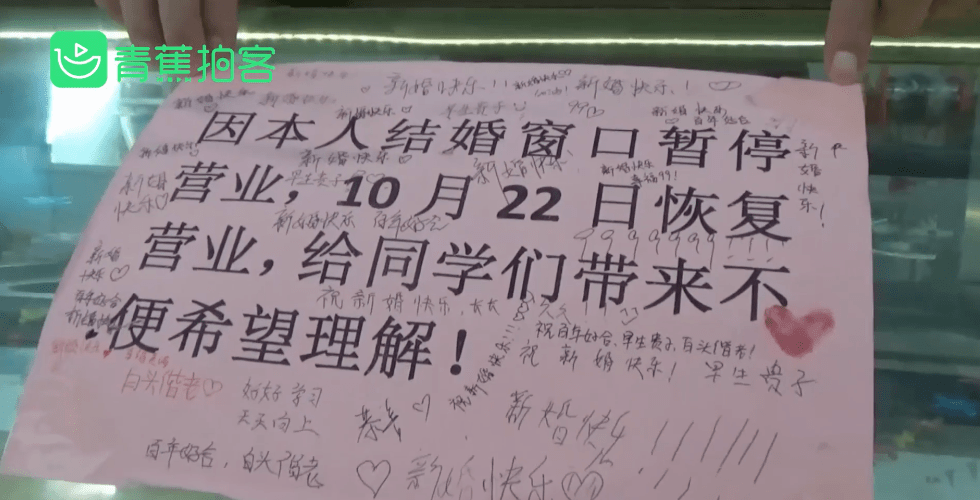 青蕉拍客
新婚快乐!!! 新婚快乐♡ 新婚快乐!
新婚快乐 新婚快乐♡ 早生贵子 99 新婚快乐
百年好合
因本人结婚窗口暂停
新婚快乐! 新婚快乐♡ 新婚快乐 新婚快乐 新婚快乐!
早生贵子 幸福99!
新婚快乐♡
营业，10月22日恢复
新婚快乐 百年好合
营业，给同学们带来不
新婚快乐♡
百年好合
祝新婚快乐，长长久久
便希望理解！
祝新婚快乐!!!
祝百年好合、早生贵子、白头偕老!
祝 新婚快乐! 早生贵子
白头偕老♡
好好学习
天天向上
新婚快乐!!!!!!
百年好合，白头偕老
♡新婚快乐